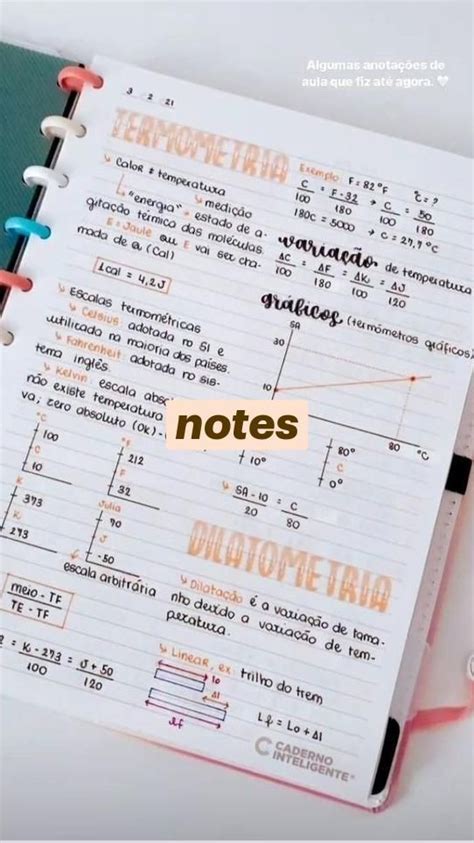 Algumas anotações de
aula que fiz até agora. 🤍
3 2 21
TERMOMETRIA
Calor ≠ temperatura
"energia" medição
estado de a-
gitação térmica das moléculas.
E = Joule ou E vai ser cha-
mada de Q (Cal)
1cal = 4,2J
Exemplo: F = 82°F °C = ?
C/100 = F - 32/180 → C/100 = 50/180
180C = 5000 → C = 27,7°C
variação de temperatura
ΔC/100 = ΔF/180 = ΔK/100 = ΔJ/120
gráficos (termômetros gráficos)
SA
30
10
80 °C
Escalas termométricas
Celsius: adotada no SI e
utilizada na maioria dos países.
Fahrenheit: adotada no sis-
tema inglês.
Kelvin: escala abso
não existe temperatura
va; zero absoluto (0K).
notes
°C
100
C
10
°F
212
F
32
K
373
K
273
Julia
70
J
-50
escala arbitrária
10°
80°
C
0°
SA - 10/20 = C/80
meio - TF
TE - TF
K - 273/100 = J + 50/120
DILATOMETRIA
Dilatação é a variação de tama-
nho devido a variação de tem-
peratura.
Linear, ex: trilho do trem
lo
Δl
Lf
Lf = Lo + Δl
CADERNO
INTELIGENTE